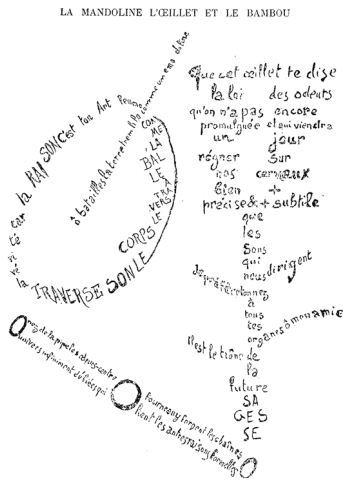 LA MANDOLINE L'ŒILLET ET LE BAMBOU
ô batailles la terre tremble comme une mandoline
COM
ME
LA
BAL
LE
À
TRA
VERS
LE
CORPS
LE SON TRAVERSE
la vérité car la RAISON c'est ton Art Femme
Que cet œillet te dise
la loi des odeurs
qu'on n'a pas encore
promulguée et qui viendra
un jour
régner sur
nos cerveaux
bien +
précise & + subtile
que
les
sons
qui
nous dirigent
Je préfère ton nez
à
tous
tes
organes ô mon amie
Il est le trône de
la
future
SA
GES
SE
O nez de la pipe les odeurs-centre
univers infiniment déliées qui
O fourneau y forgent les chaînes
lient les autres raisons formelles
O